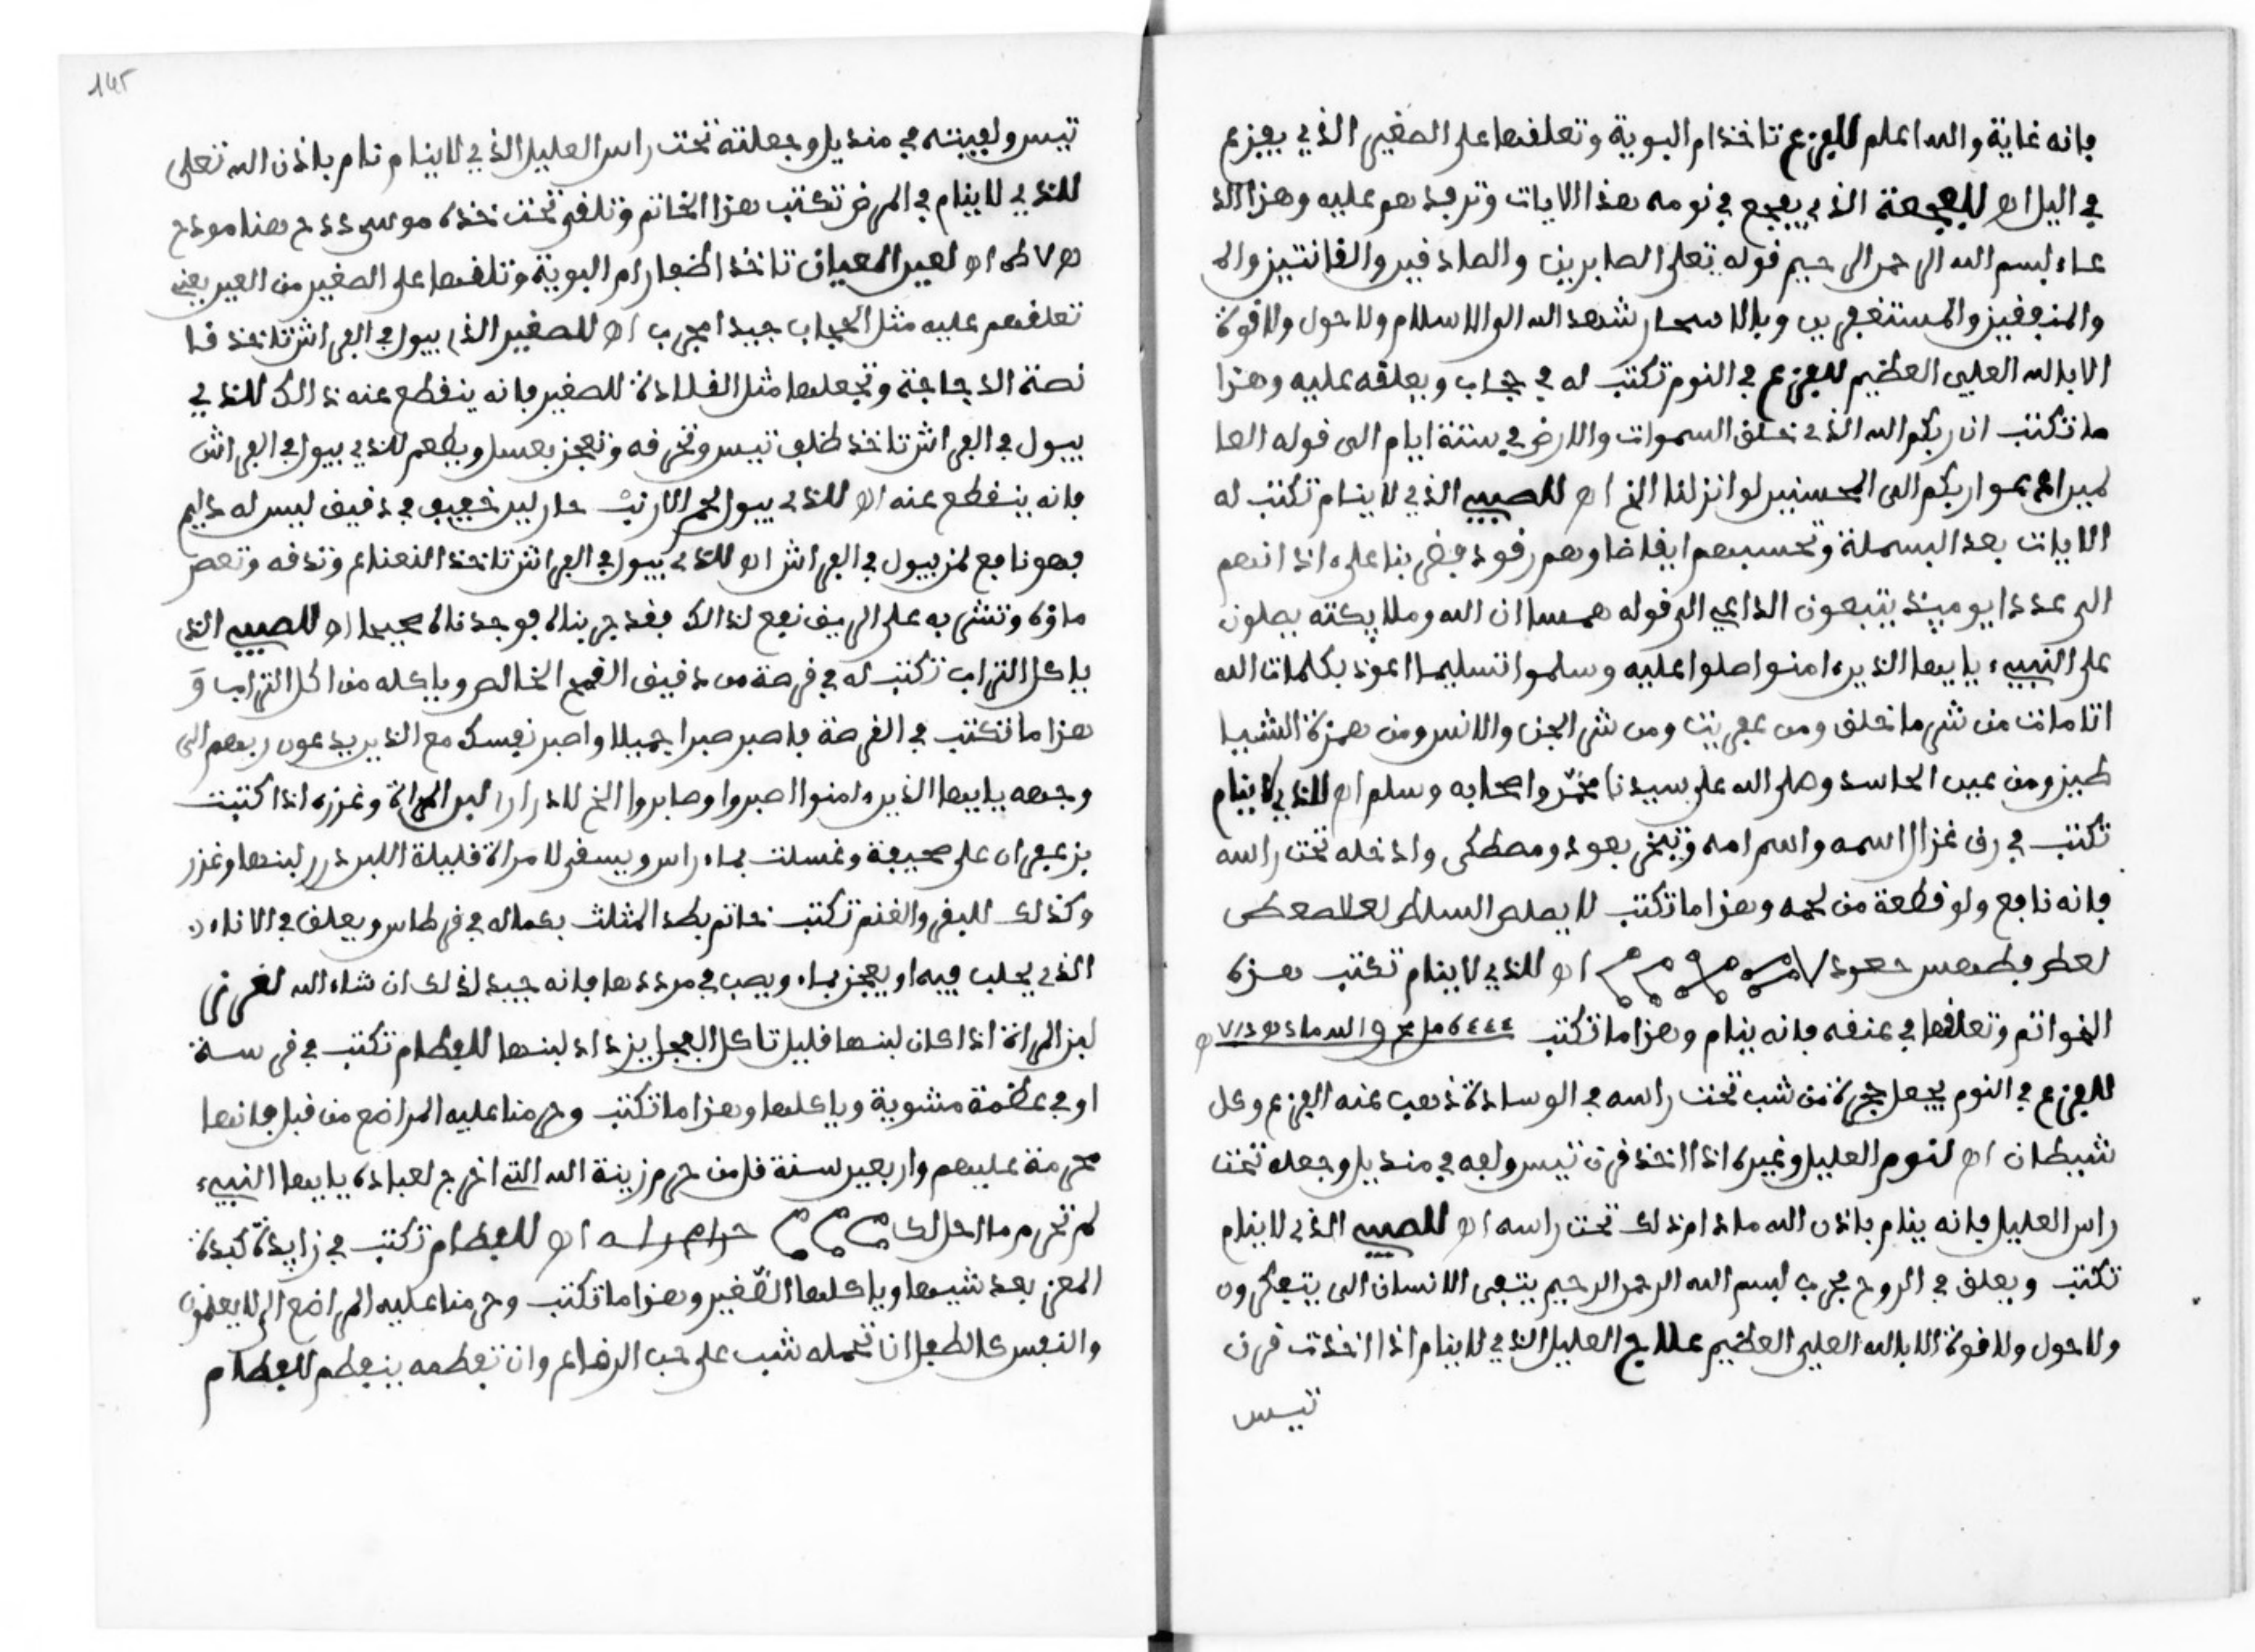 فإنه غاية والله اعلم للفزع تاخذ ام البوية وتعلقها على الصغير الذي يفزع
في اليل اه للفجعة الذي يفجع في نومه هذا الايات وترفد هم عليه وهذا الد
عاء بسم الله الرحمن الرحيم قوله تعلى الصابرين والصادقين والقانتين والم
والمنفقين والمستغفرين وبالاسحار شهد الله الى الاسلام ولا حول ولا قوة
الا بالله العلي العظيم للفزع في النوم تكتب له في حجاب ويعلقه عليه وهذا
ما تكتب ان ربكم الله الذي خلق السموات والارض في ستة ايام الى قوله العا
لمين ادعوا ربكم الى المحسنين لو انزلنا الخ اه للصبي الذي لا ينام تكتب له
الايات بعد البسملة وتحسبهم ايقاضا وهم رقود فضربنا على اذانهم
الى عددا يوميذ يتبعون الداعي الى قوله همسا ان الله وملايكته يصلون
على النبيء يايها الذين امنوا صلوا عليه وسلموا تسليما اعوذ بكلمات الله
اتامات من شر ما خلق ومن عفريت ومن شر الجن والانس ومن همزة الشيا
طين ومن عين الحاسد وصلى الله على سيدنا محمد واصحابه وسلم اه للذي لا ينام
تكتب في رق غزال اسمه واسم امه وتبخر بعود ومصطكى وادخله تحت راسه
فإنه نافع ولو قطعة من لحمه وهذا ما تكتب
اه للذي لا ينام تكتب هذه
الخواتم وتعلقها في عنقه فإنه ينام وهذا ما تكتب
للفزع في النوم يجعل حجرة من شب تحت راسه في الوسادة ذهب عنه الفزع وكل
شيطان اه لنوم العليل وغيره اذا اخذ قرن تيس ولفه في منديل وجعله تحت
راس العليل فإنه ينام باذن الله ماذام ذلك تحت راسه اه للصبي الذي لا ينام
تكتب ويعلق في الروح مجرب بسم الله الرحمن الرحيم يتفى الانسان الى يتفكرون
ولا حول ولا قوة الا بالله العلي العظيم علاج العليل الذي لا ينام اذا اخذت قرن
تيس
145
تيس ولفيته في منديل وجعلته تحت راس العليل الذي لا ينام نام باذن الله تعلى
للذي لا ينام في المرض تكتب هذا الخاتم وتلقى تحت خده موسى
لعين المعيان تاخذ اظفار ام البوية وتلقها على الصغير من العين يعني
تعلقهم عليه مثل الحجاب جيدا مجرب اه للصغير الذي يبول في الفراش تاخذ قا
نصة الدجاجة وتجعلها مثل القلادة للصغير فإنه ينقطع عنه ذالك للذي
يبول في الفراش تاخذ ظلف تيس وتحرفه وتعجن بعسل ويطعم للذي يبول في الفراش
فإنه ينقطع عنه اه للذي يبول لحم الارنب حار لين خفيف في دقيق ليس له
فهو نافع لمن يبول في الفراش اه للذي يبول في الفراش تاخذ النعناع وتدقه وتعصر
ماؤه وتنشى به على الريق نفع لذالك فقد جربناه فوجدناه صحيحا اه للصبي الذي
ياكل التراب تكتب له في قرصة من دقيق القمح الخالص وياكله من اكل التراب و
هذا ما تكتب في القرصة فاصبر صبرا جميلا واصبر نفسك مع الذين يدعون ربهم الى
وجهه يايها الذين امنوا اصبروا وصابروا الخ للدرار لبن المراة وغزره اذا كتبت
بزعفران على صحيفة وغسلت بماء راس ويسقى لامراة قليلة اللبن درر لبنها وغزر
وكذلك للبقر والغنم تكتب خاتم بطد المثلث بكماله في قرطاس ويعلق في الاناء
الذي يحلب فيه او يعجن بماء ويصب في مرددها فإنه جيد لذلك ان شاء الله
لبن المراة اذا كان لبنها قليل تاكل الفجل يزداد لبنها للفطام تكتب في قرسة
او في عظمة مشوية وياكلها وهذا ما تكتب وحرمنا عليه المراضع من قبل فإنها
محرمة عليهم واربعين سنة قل من حرم زينة الله التي اخرج لعباده يايها النبيء
لم تحرم ما احل لك
اه للفطام تكتب في زايدة كبدة
المعز بعد شيها وياكلها الصغير وهذا ما تكتب وحرمنا عليه المراضع الى لا يعلمون
والنفس كالطفل ان تهمله شب على حب الرضاع وان تفطمه ينفطم للفطام